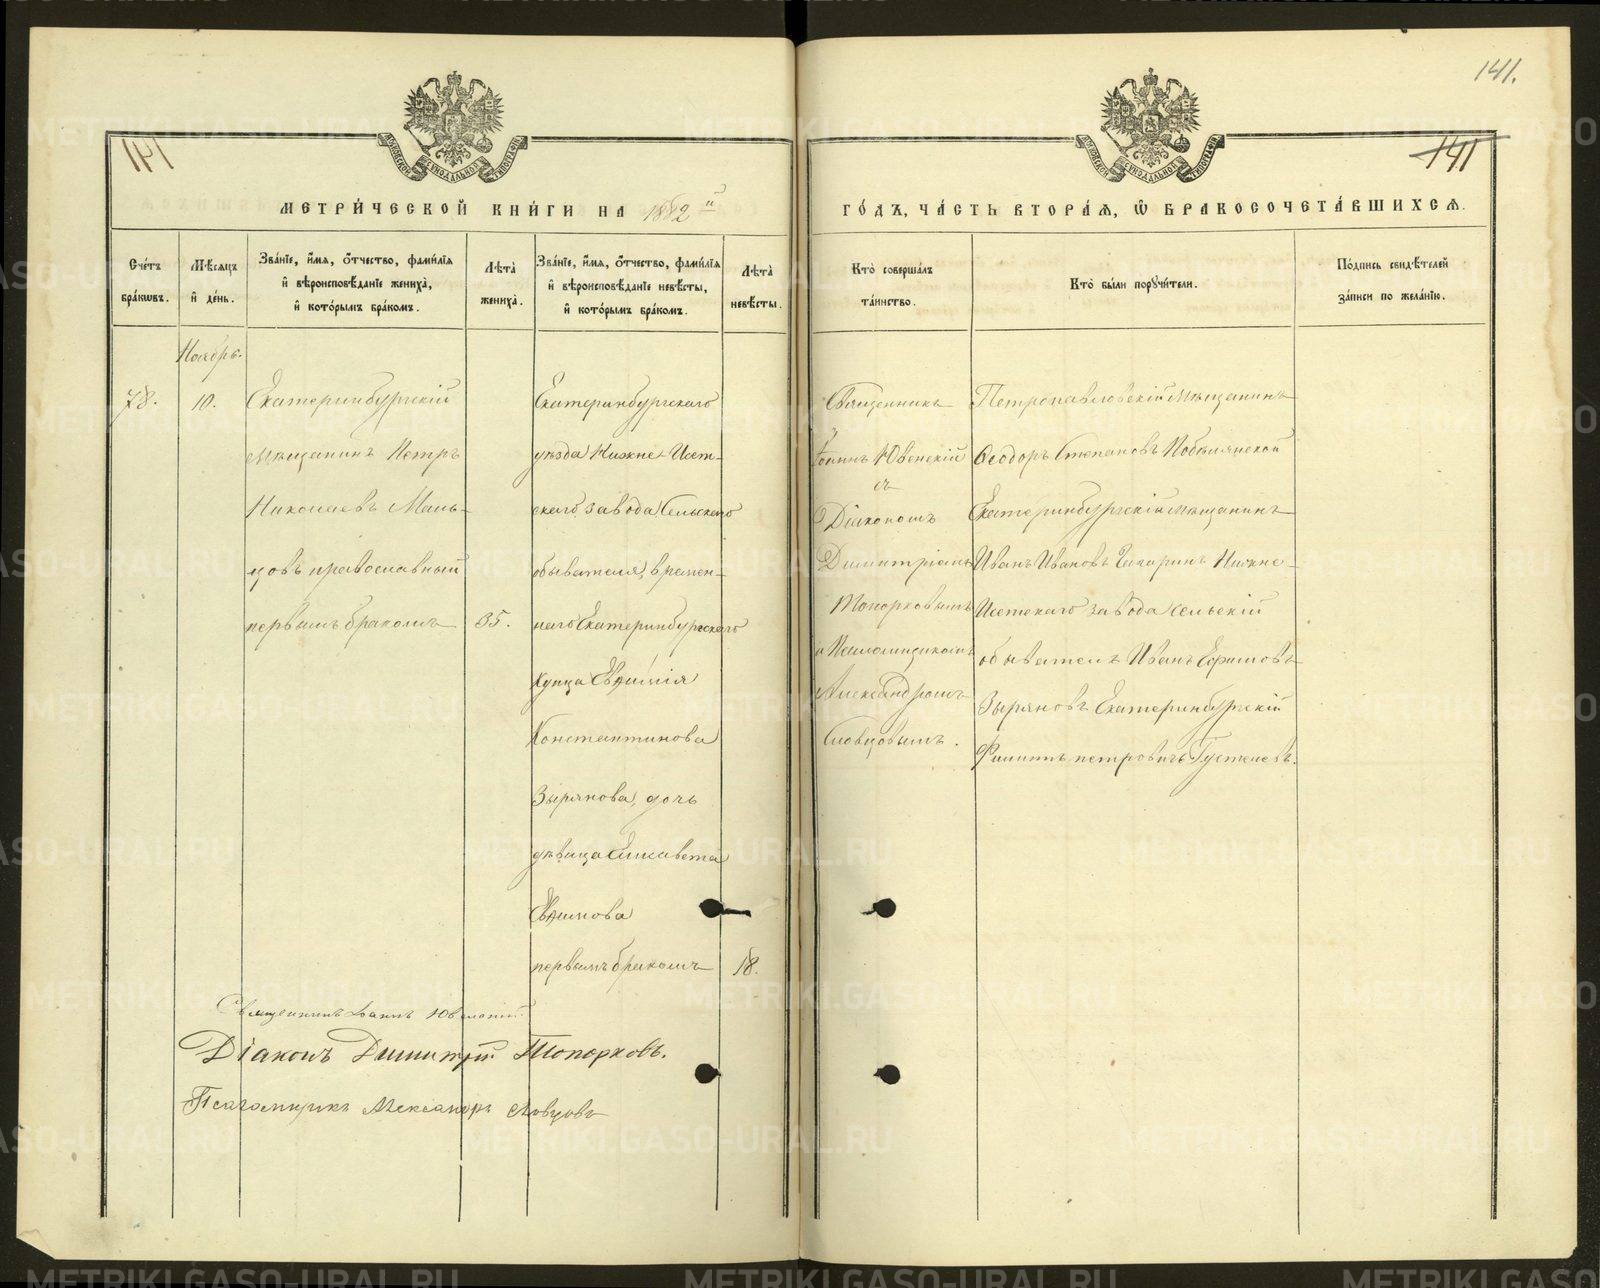 141.
141
141
МЕТРИ́ЧЕСКОЙ КНИ́ГИ НА 1882й
ГО́ДЪ, ЧА́СТЬ ВТОРА́Я, Ѡ БРАКОСОЧЕТА́ВШИХСЯ.
Сче́тъ бра́кѡвъ.
Мѣ́сяцъ и де́нь.
Зва́нїе, и́мя, о́тчество, фами́лїя
и вѣроисповѣ́данїе жениха̀,
и кото́рымъ бра́комъ.
Лѣ́та жениха̀.
Зва́нїе, и́мя, о́тчество, фами́лїя
и вѣроисповѣ́данїе невѣ́сты,
и кото́рымъ бра́комъ.
Лѣ́та невѣ́сты.
Кто̀ соверша́лъ
та́инство.
Кто̀ бы́ли порꙋчи́тели.
По́дпись свидѣ́телей
за́писи по жела́нїю.
Ноябрь.
78.
10.
Екатеринбургскій
мѣщанинъ Петръ
Николаевъ Маль-
цовъ православный
первымъ бракомъ
35.
Екатеринбургскаго
уѣзда Нижне-Исет-
скаго завода Сельскаго
обывателя, времен-
наго Екатеринбургскаго
купца Евѳимія
Константинова
Зырянова, дочь
дѣвица Елисавета
Евѳимова
первымъ бракомъ
18.
Священникъ
Іоаннъ Ювенскій
съ
Діакономъ
Димитріемъ
Топорковымъ
и Псаломщикомъ
Александромъ
Словцовымъ.
Петропавловскій мѣщанинъ
Ѳеодоръ Степановъ
Екатеринбургскій мѣщанинъ
Иванъ Ивановъ Нижне-
Исетскаго завода сельскій
обыватель Иванъ Ефимовъ
Зыряновъ Екатеринбургскій
Филиппъ петровичъ
Священникъ Іоаннъ Ювенскій
Діаконъ Димитрій Топорковъ.
Псаломщикъ Александръ Словцовъ
METRIKI.GASO-URAL.RU